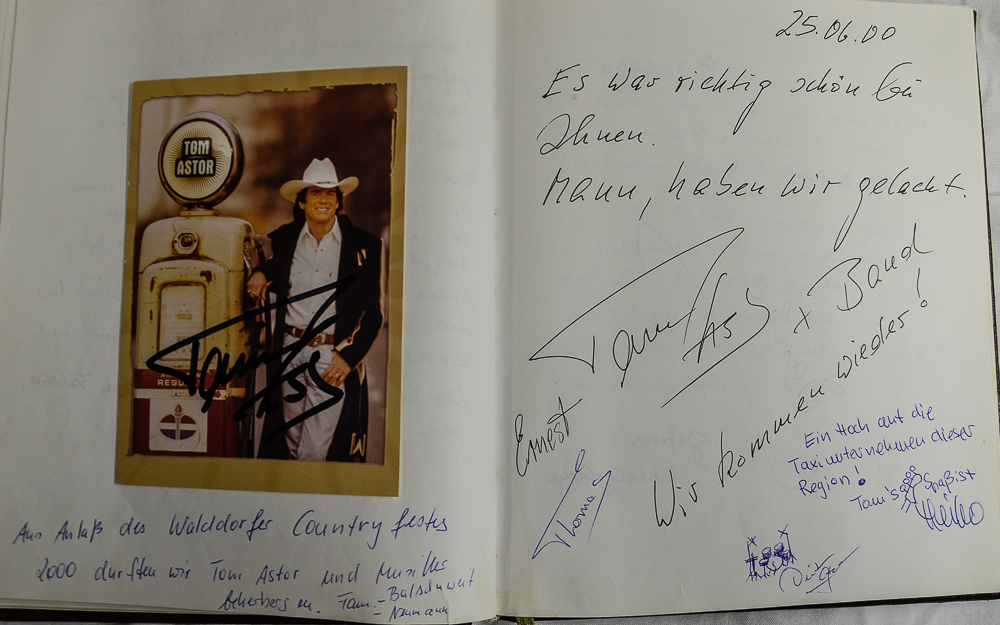 TOM
ASTOR
REGU
Tom Astor
Aus Anlaß des Walddorfer Countryfestes
2000 durften wir Tom Astor und Musiker
beherbergen. Fam.- Balschuweit
- Neumann
25.06.00
Es war richtig schön bei
Ihnen.
Mann, haben wir gelacht.
Tom Astor + Band
Wir kommen wieder!
Ernest
Thomas
Ein Hoch auf die
Taxiunternehmen dieser
Region!
Tom's Spaßist
Heiko